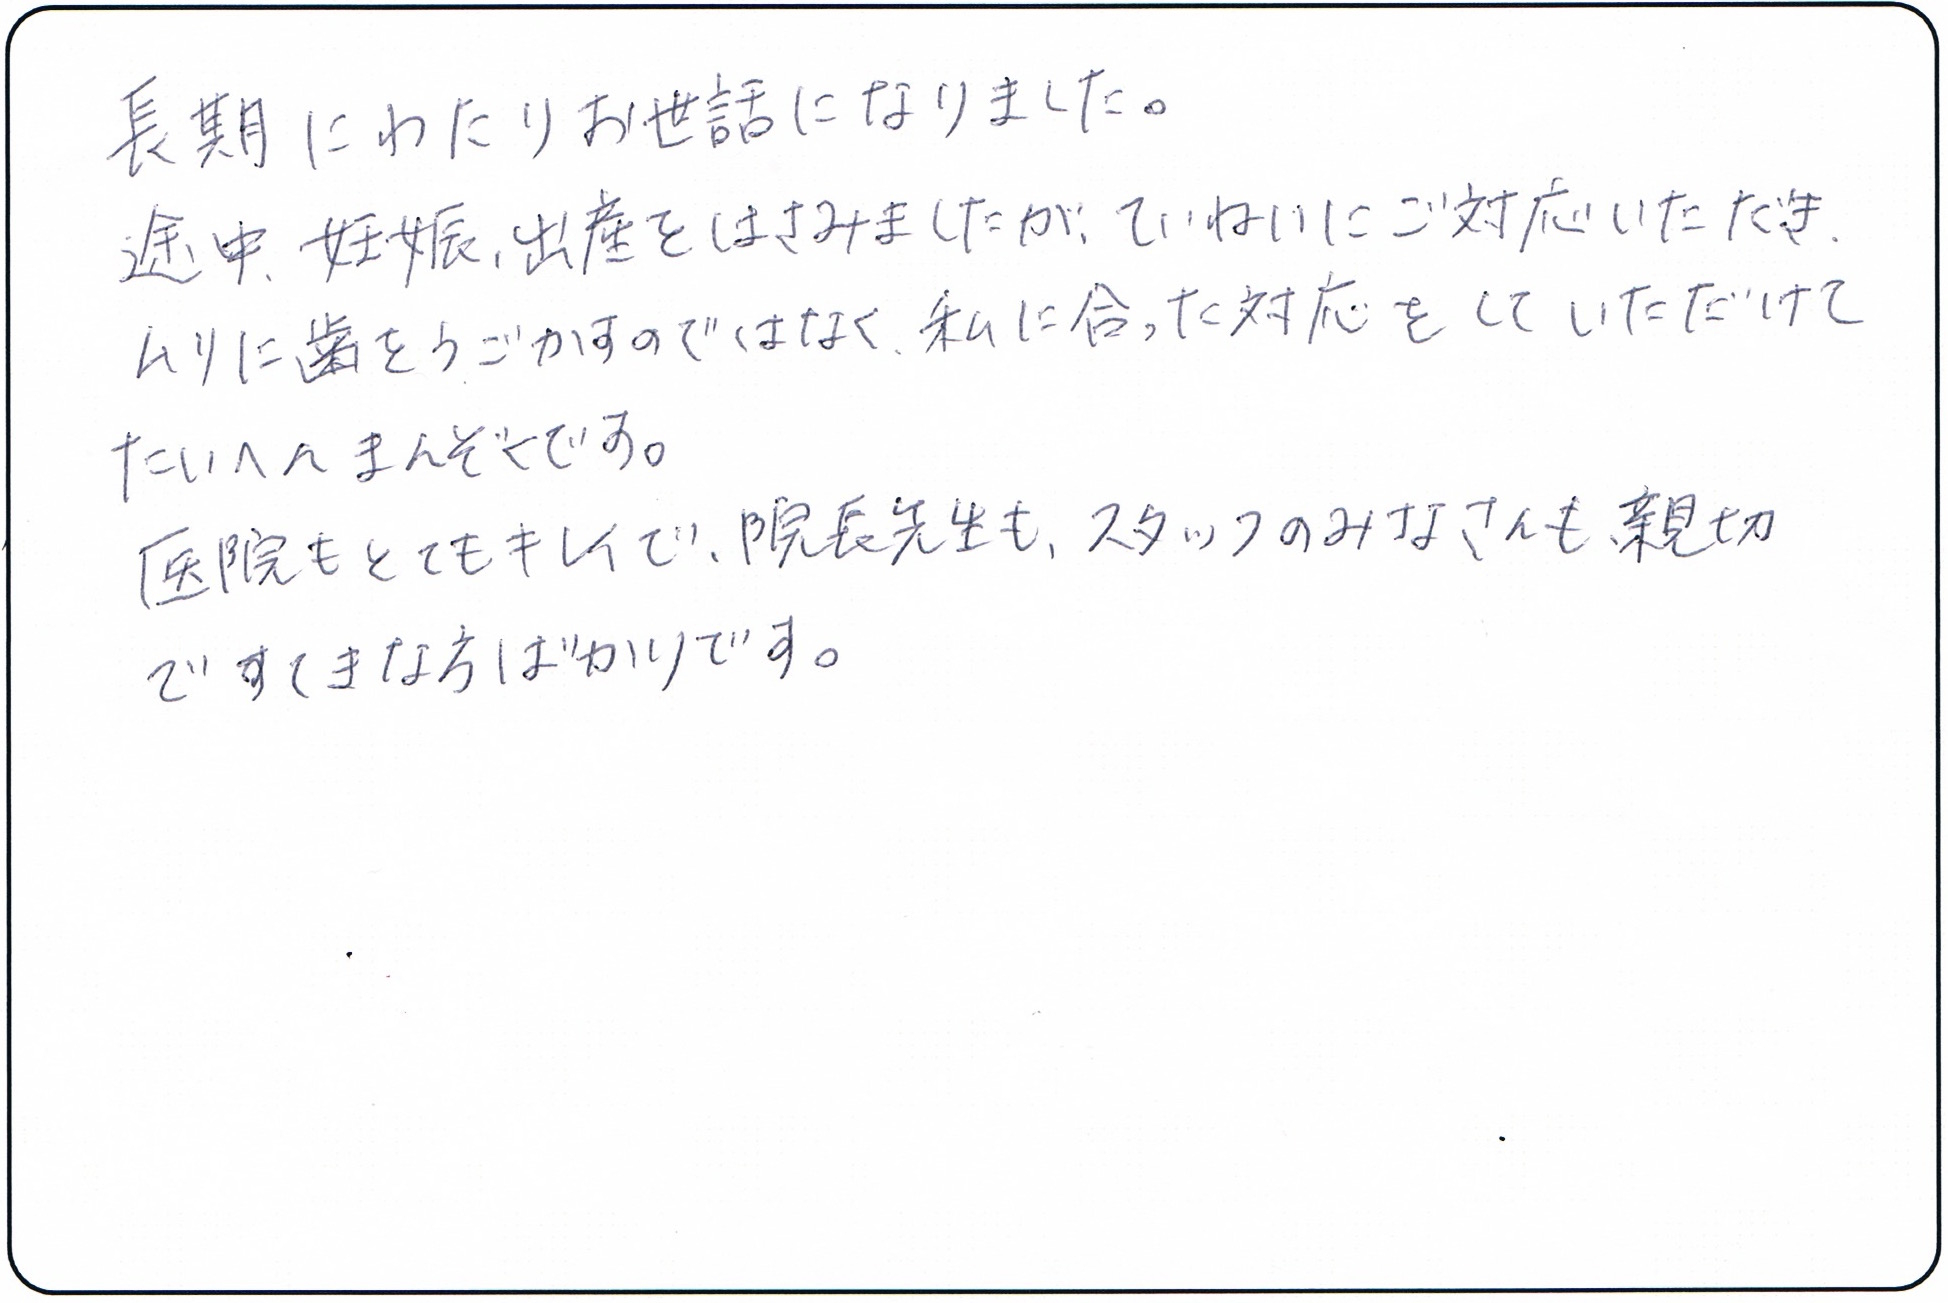 長期にわたりお世話になりました。
途中、妊娠、出産をはさみましたが、ていねいにご対応いただき、
ムリに歯をうごかすのではなく、私に合った対応をしていただけて
たいへんまんぞくです。
医院もとてもキレイで、院長先生も、スタッフのみなさんも、親切
ですてきな方ばかりです。